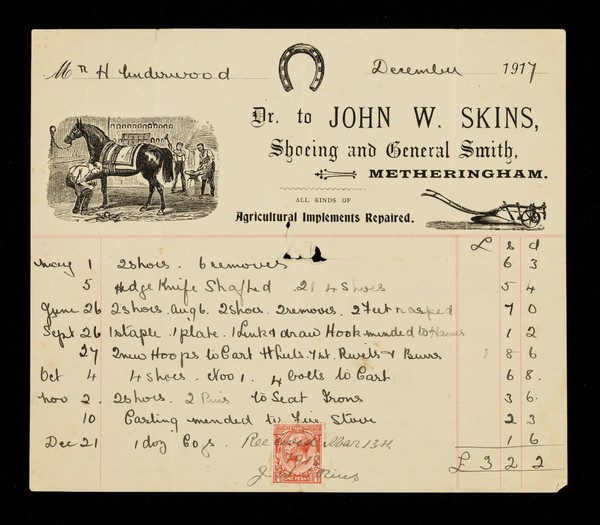 Mr H. Underwood December 1917
Dr. to JOHN W. SKINS,
Shoeing and General Smith,
METHERINGHAM.
ALL KINDS OF
Agricultural Implements Repaired.
£ s d
May 1 2 shoes. 6 removes 6 3
5 Hedge Knife Shafted 21 4 Shoes 5 4
June 26 2 shoes. Aug 6. 2 Shoes. 2 removes. 2 Feet rasped 7 0
Sept 26 1 staple. 1 plate. 1 Link & draw Hook mended to Hames 1 2
27 2 new Hoops to Cart Wheels. Rivets & Burrs 1 8 6
Oct 4 4 shoes. Nov 1. 4 bolts to Cart 6 8.
Nov 2. 2 shoes. 2 Pins to Seat Irons 3 6.
10 Casting mended to Fire Stove 2 3
Dec 21 1 doz Cogs. Received Mar 13th 1 6
1918
£ 3 2 2
J.